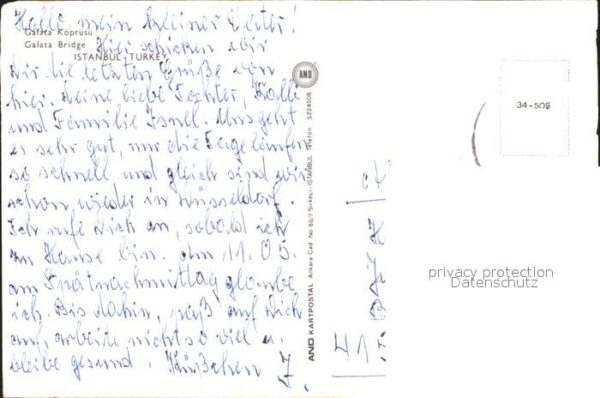 Hallo mein kleiner Peter!
Galata Köprüsü
Galata Bridge
ISTANBUL - TURKEY
Hier schicken wir
Dir die letzten Grüße von
hier. Deine liebe Tochter,
und Familie Isnel. Uns geht
es sehr gut, nur die Tage laufen
so schnell und gleich sind wir
schon wieder in Düsseldorf.
Ich rufe Dich an, sobald ich
zu Hause bin. Am 11.05.
am Spätnachmittag glaube
ich. Bis dahin, paß auf Dich
auf, arbeite nicht so viel u.
bleibe gesund. Küßchen
J.
AND
AND KARTPOSTAL Ankara Cad. No: 60/1 Sirkeci-ISTANBUL Telefon: 5224508
34-509
privacy protection
Datenschutz